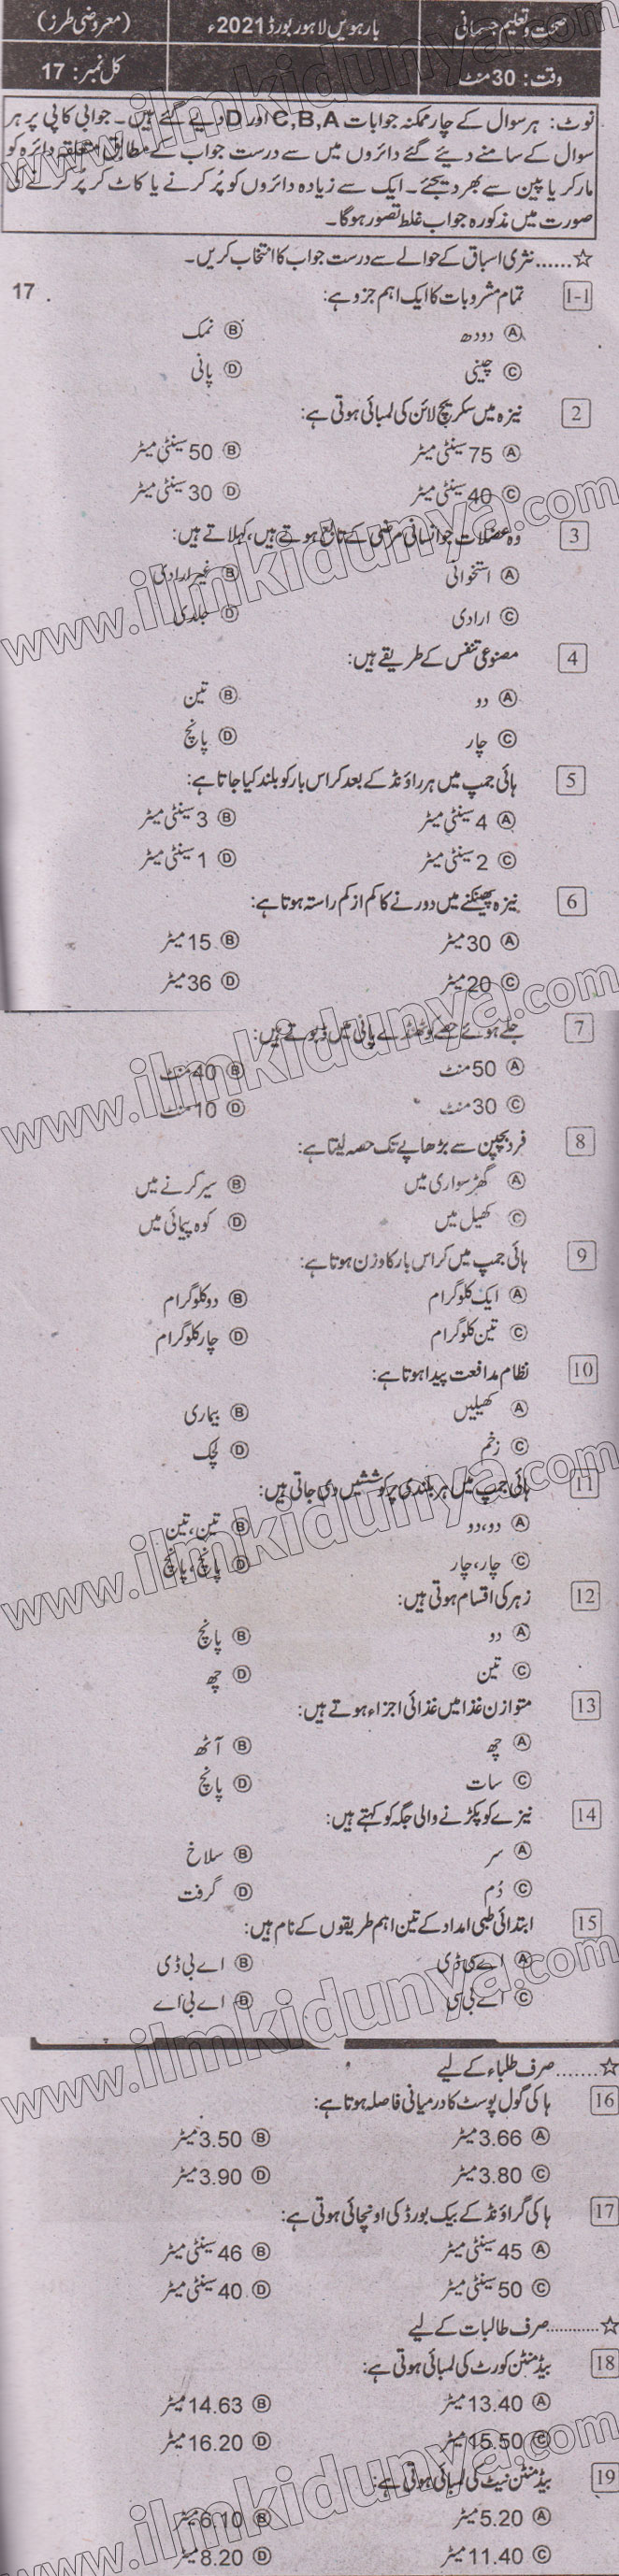 صحت و تعلیم جسمانی بارہویں لاہور بورڈ 2021ء (معروضی طرز)
وقت: 30 منٹ کل نمبر: 17
نوٹ: ہر سوال کے چار ممکنہ جوابات A,B,C اور D دیے گئے ہیں۔ جوابی کاپی پر ہر
سوال کے سامنے دیئے گئے دائروں میں سے درست جواب کے مطابق متعلقہ دائرہ کو
مارکر یا پین سے بھر دیجئے۔ ایک سے زیادہ دائروں کو پُر کرنے یا کاٹ کر پُر کرنے کی
صورت میں مذکورہ جواب غلط تصور ہوگا۔
☆...... نثری اسباق کے حوالے سے درست جواب کا انتخاب کریں۔
1-1 تمام مشروبات کا ایک اہم جزو ہے: 17
A دودھ B نمک
C چینی D پانی
2 نیزہ میں سکریچ لائن کی لمبائی ہوتی ہے:
A 75 سینٹی میٹر B 50 سینٹی میٹر
C 40 سینٹی میٹر D 30 سینٹی میٹر
3 وہ عضلات جو انسانی مرضی کے تابع ہوتے ہیں، کہلاتے ہیں:
A استخوانی B غیر ارادی
C ارادی D جلدی
4 مصنوعی تنفس کے طریقے ہیں:
A دو B تین
C چار D پانچ
5 ہائی جمپ میں ہر راؤنڈ کے بعد کراس بار کو بلند کیا جاتا ہے:
A 4 سینٹی میٹر B 3 سینٹی میٹر
C 2 سینٹی میٹر D 1 سینٹی میٹر
6 نیزہ پھینکنے میں دورنے کا کم از کم راستہ ہوتا ہے:
A 30 میٹر B 15 میٹر
C 20 میٹر D 36 میٹر
7 جلے ہوئے حصے کو ٹھنڈے پانی میں ڈبوتے ہیں:
A 50 منٹ B 40 منٹ
C 30 منٹ D 10 منٹ
8 فرد بچپن سے بڑھاپے تک حصہ لیتا ہے:
A گھڑ سواری میں B سیر کرنے میں
C کھیل میں D کوہ پیمائی میں
9 ہائی جمپ میں کراس بار کا وزن ہوتا ہے:
A ایک کلوگرام B دو کلوگرام
C تین کلوگرام D چار کلوگرام
10 نظام مدافعت پیدا ہوتا ہے:
A کھیلیں B بیماری
C زخم D لچک
11 ہائی جمپ میں ہر بلندی پر کوششیں دی جاتی ہیں:
A دو، دو B تین، تین
C چار، چار D پانچ، پانچ
12 زہر کی اقسام ہوتی ہیں:
A دو B پانچ
C تین D چھ
13 متوازن غذا میں غذائی اجزاء ہوتے ہیں:
A چھ B آٹھ
C سات D پانچ
14 نیزے کو پکڑنے والی جگہ کو کہتے ہیں:
A سر B سلاخ
C دُم D گرفت
15 ابتدائی طبی امداد کے تین اہم طریقوں کے نام ہیں:
A اے سی ڈی B اے بی ڈی
C اے بی سی D اے بی اے
☆....... صرف طلباء کے لیے
16 ہاکی گول پوسٹ کا درمیانی فاصلہ ہوتا ہے:
A 3.66 میٹر B 3.50 میٹر
C 3.80 میٹر D 3.90 میٹر
17 ہاکی گراؤنڈ کے بیک بورڈ کی اونچائی ہوتی ہے:
A 45 سینٹی میٹر B 46 سینٹی میٹر
C 50 سینٹی میٹر D 40 سینٹی میٹر
☆........... صرف طالبات کے لیے
18 بیڈمنٹن کورٹ کی لمبائی ہوتی ہے:
A 13.40 میٹر B 14.63 میٹر
C 15.50 میٹر D 16.20 میٹر
19 بیڈمنٹن نیٹ کی لمبائی ہوتی ہے:
A 5.20 میٹر B 6.10 میٹر
C 11.40 میٹر D 8.20 میٹر
www.ilmkidunya.com
www.ilmkidunya.com
www.ilmkidunya.com
www.ilmkidunya.com
www.ilmkidunya.com
www.ilmkidunya.com